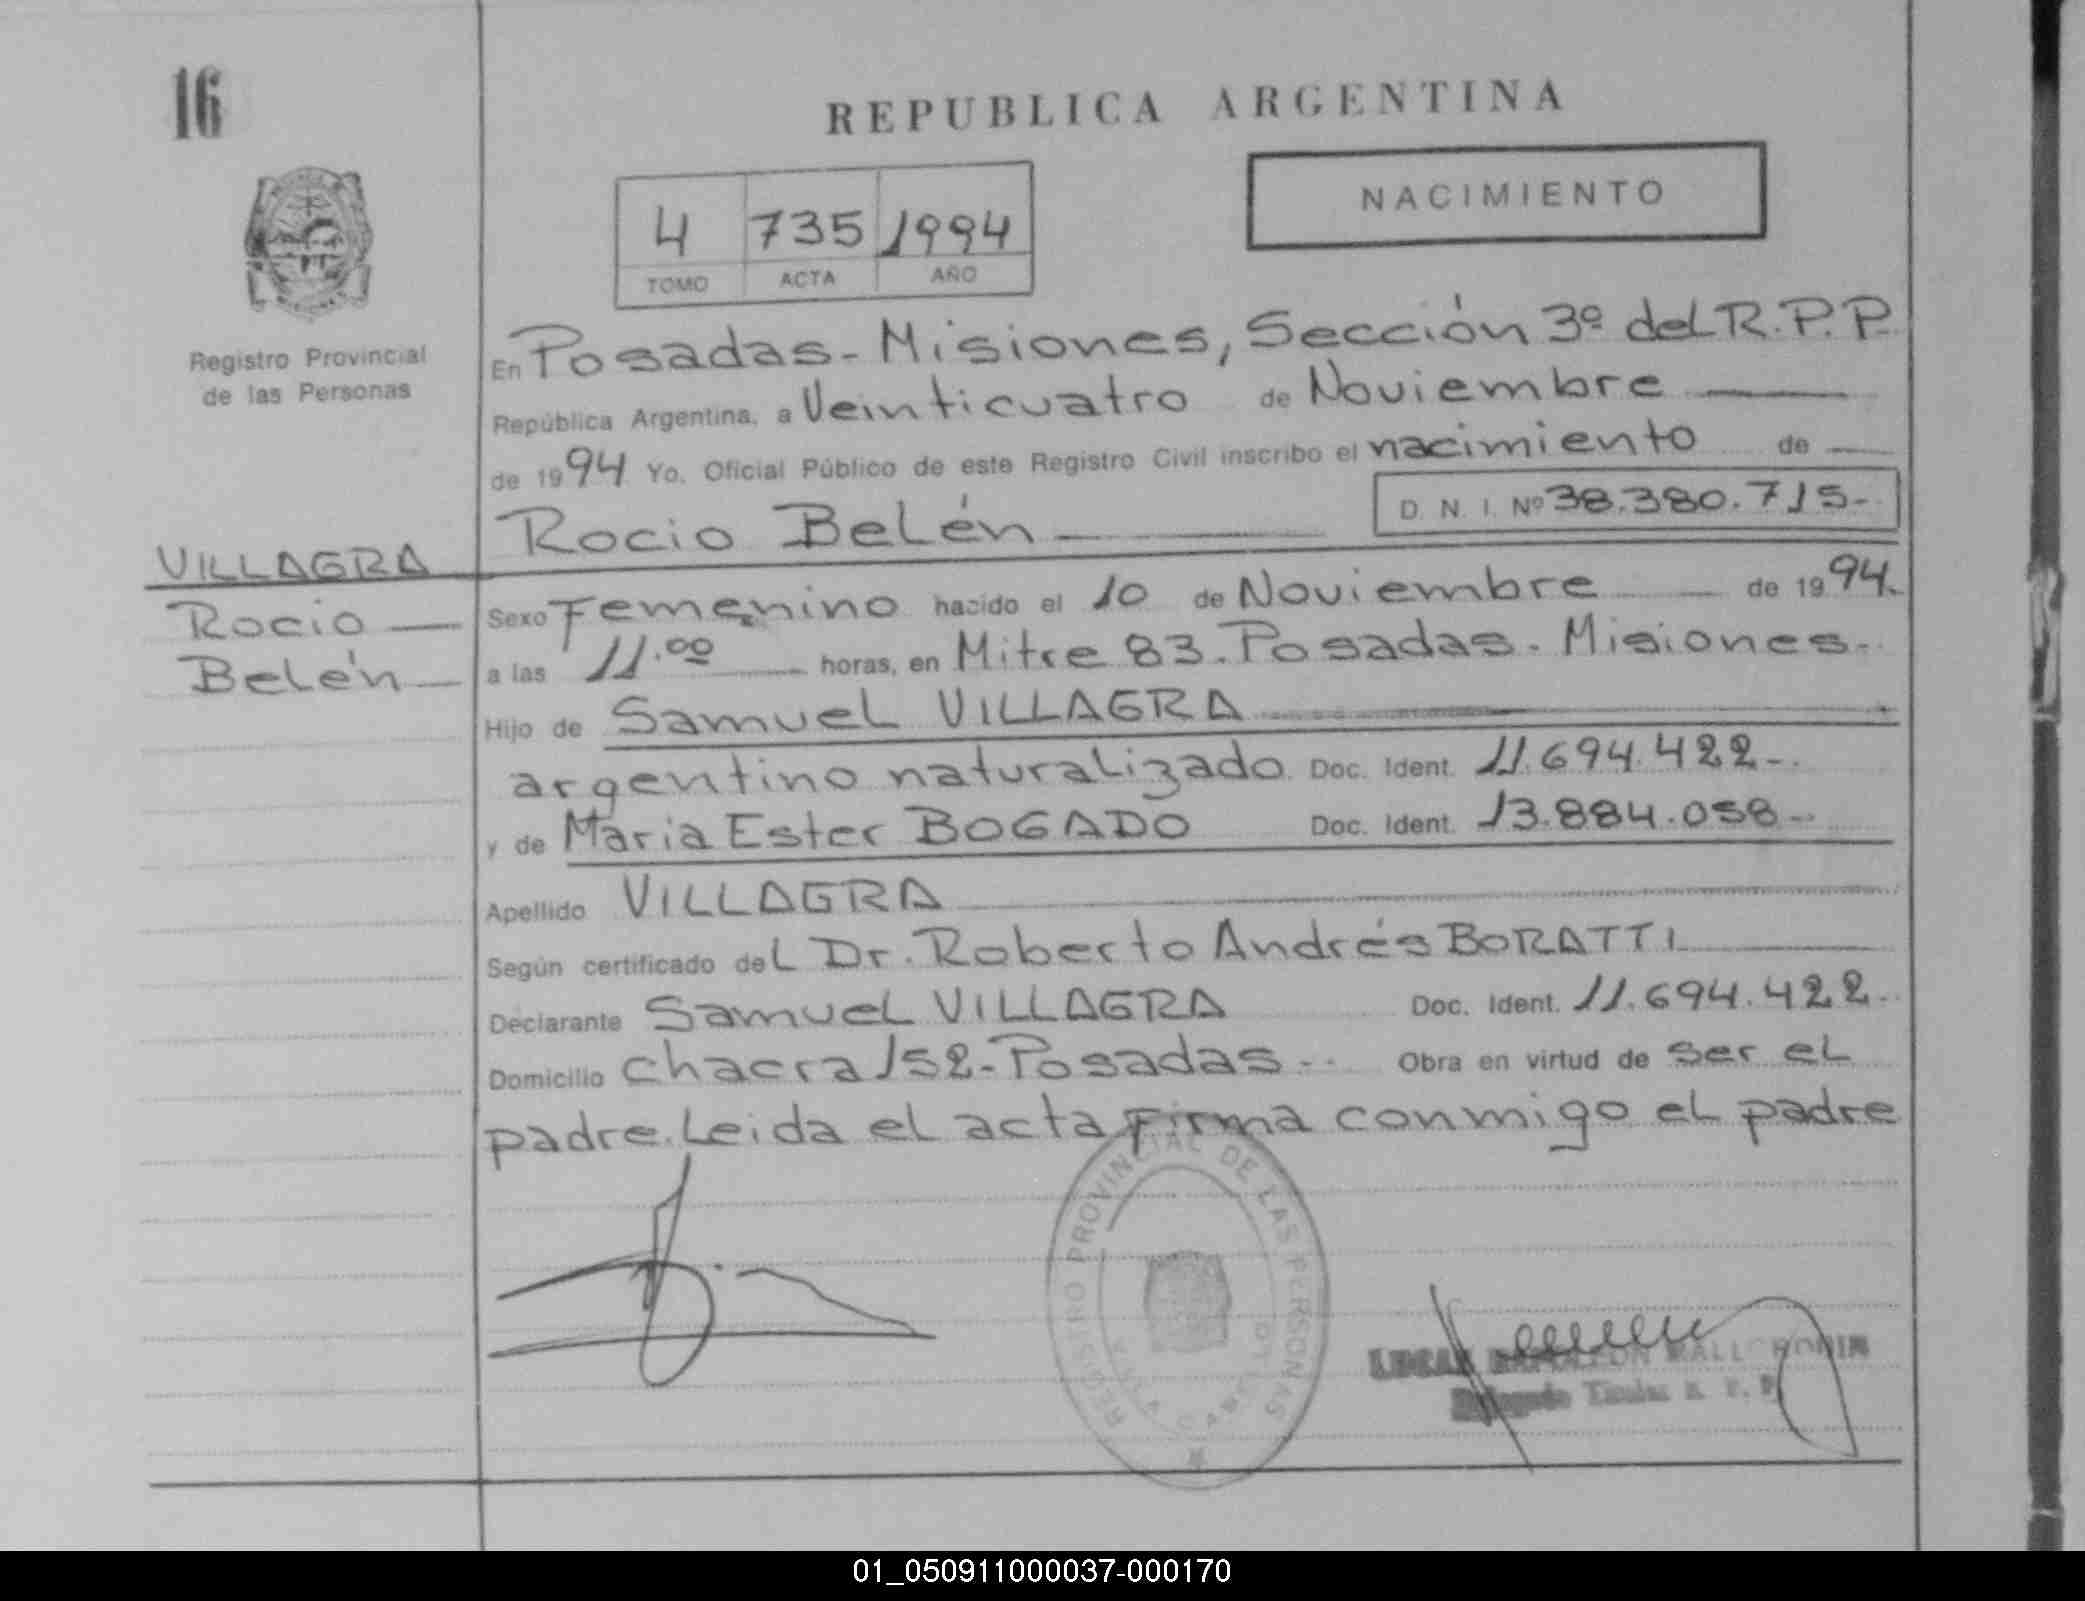 16
REPUBLICA ARGENTINA
NACIMIENTO
4 735 1994
TOMO ACTA AÑO
Registro Provincial
de las Personas
En Posadas - Misiones, Sección 3º del R.P.P.
República Argentina, a Veinticuatro de Noviembre
de 1994 Yo, Oficial Público de este Registro Civil inscribo el nacimiento de
Rocio Belén
D. N. I. Nº 38.380.715-
VILLAGRA
Rocio
Belén
Sexo Femenino nacido el 10 de Noviembre de 1994.
a las 11.00 horas, en Mitre 83. Posadas - Misiones-
Hijo de Samuel VILLAGRA
argentino naturalizado Doc. Ident. 11.694.422-
y de Maria Ester BOGADO Doc. Ident. 13.884.058-
Apellido VILLAGRA
Según certificado del Dr. Roberto Andrés BORATTI
Declarante Samuel VILLAGRA Doc. Ident. 11.694.422.
Domicilio chacra 152-Posadas- Obra en virtud de ser el
padre. Leida el acta firma conmigo el padre
REGISTRO PROVINCIAL DE LAS PERSONAS
VILLA CABELLO
NAPOLEON
Delegado Titular R. P. P.
01_050911000037-000170